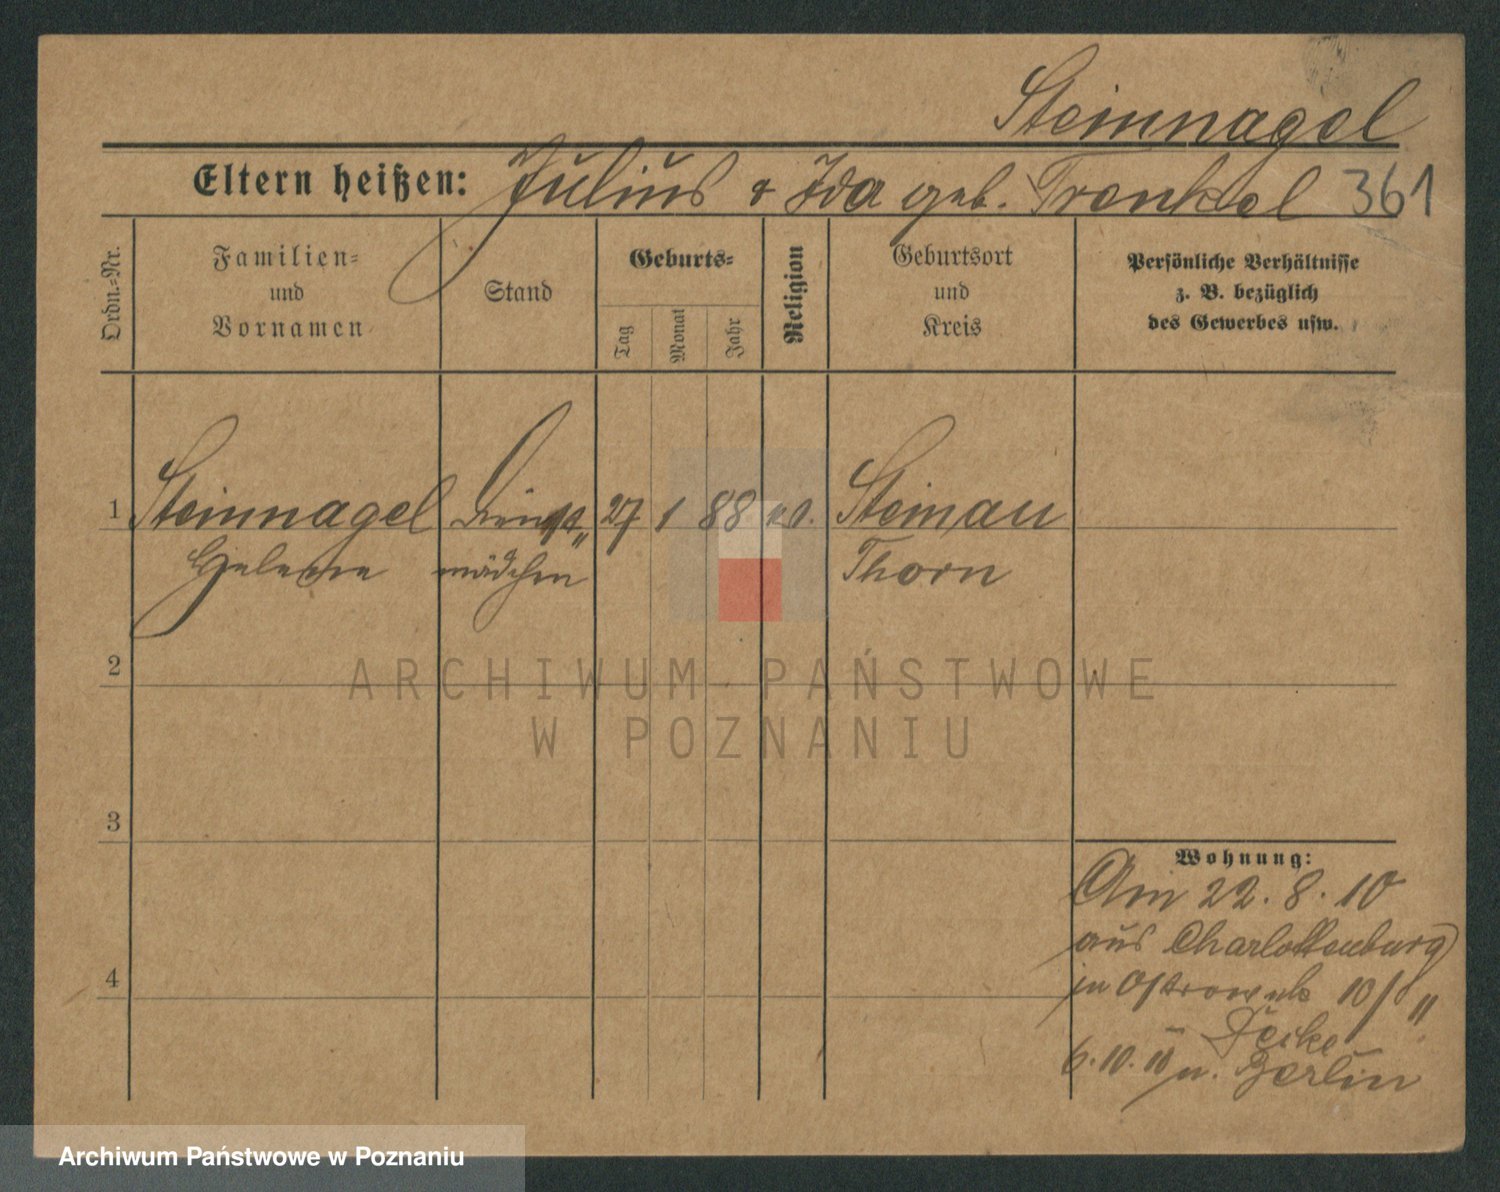 Steinnagel
Eltern heißen: Julius & Ida geb. Trenkel 361
Ordn.-Nr.
Familien-
und
Vornamen
Stand
Geburts-
Tag
Monat
Jahr
Religion
Geburtsort
und
Kreis
Persönliche Verhältnisse
z. B. bezüglich
des Gewerbes usw.
1 Steinnagel Dienst- 27 1 88 ev. Steinau
Helene mädchen Thorn
2
3
4
Wohnung:
Am 22. 8. 10
aus Charlottenburg
in 10/
6. 10. 10 n. Berlin
ARCHIWUM PAŃSTWOWE
W POZNANIU
Archiwum Państwowe w Poznaniu